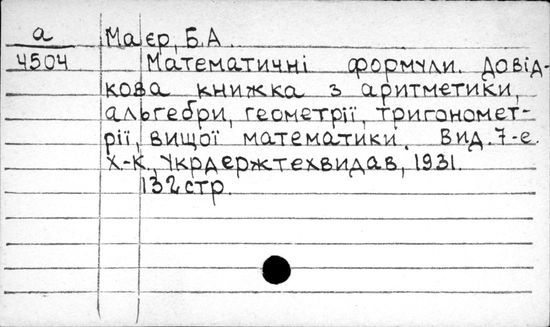 а
4504
Маєр, Б.А.
Математичні формули. Довід-
кова книжка з аритметики,
альгебри, геометрії, тригономет-
рії, вищої математики. Вид. 7-е.
Х.-К., Укрдержтехвидав, 1931.
132 стр.